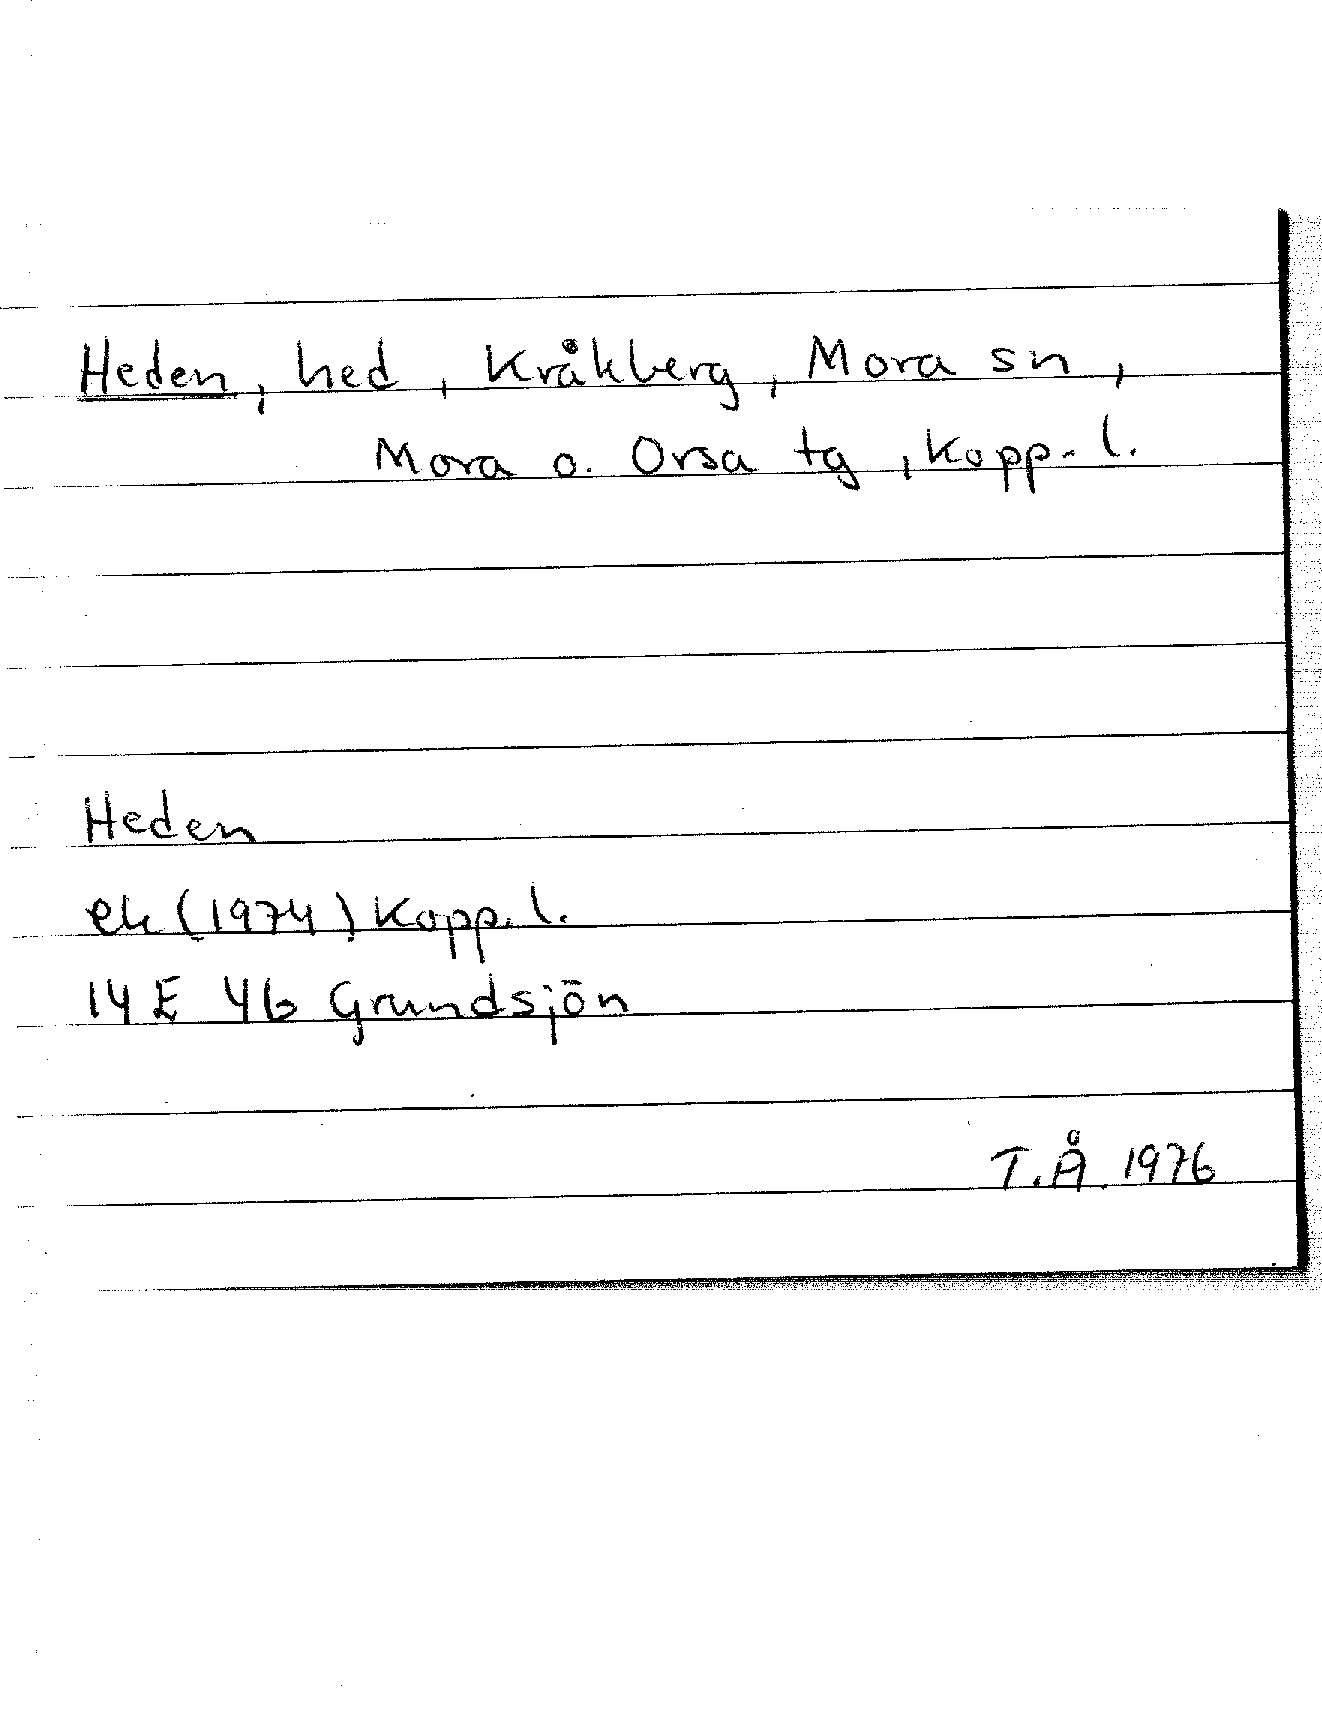 Heden, hed, Kråkberg, Mora sn,
Mora o. Orsa tg, Kopp. l.
Heden
ek (1974) Kopp. l.
14 E 4b Grundsjön
T.Å. 1976